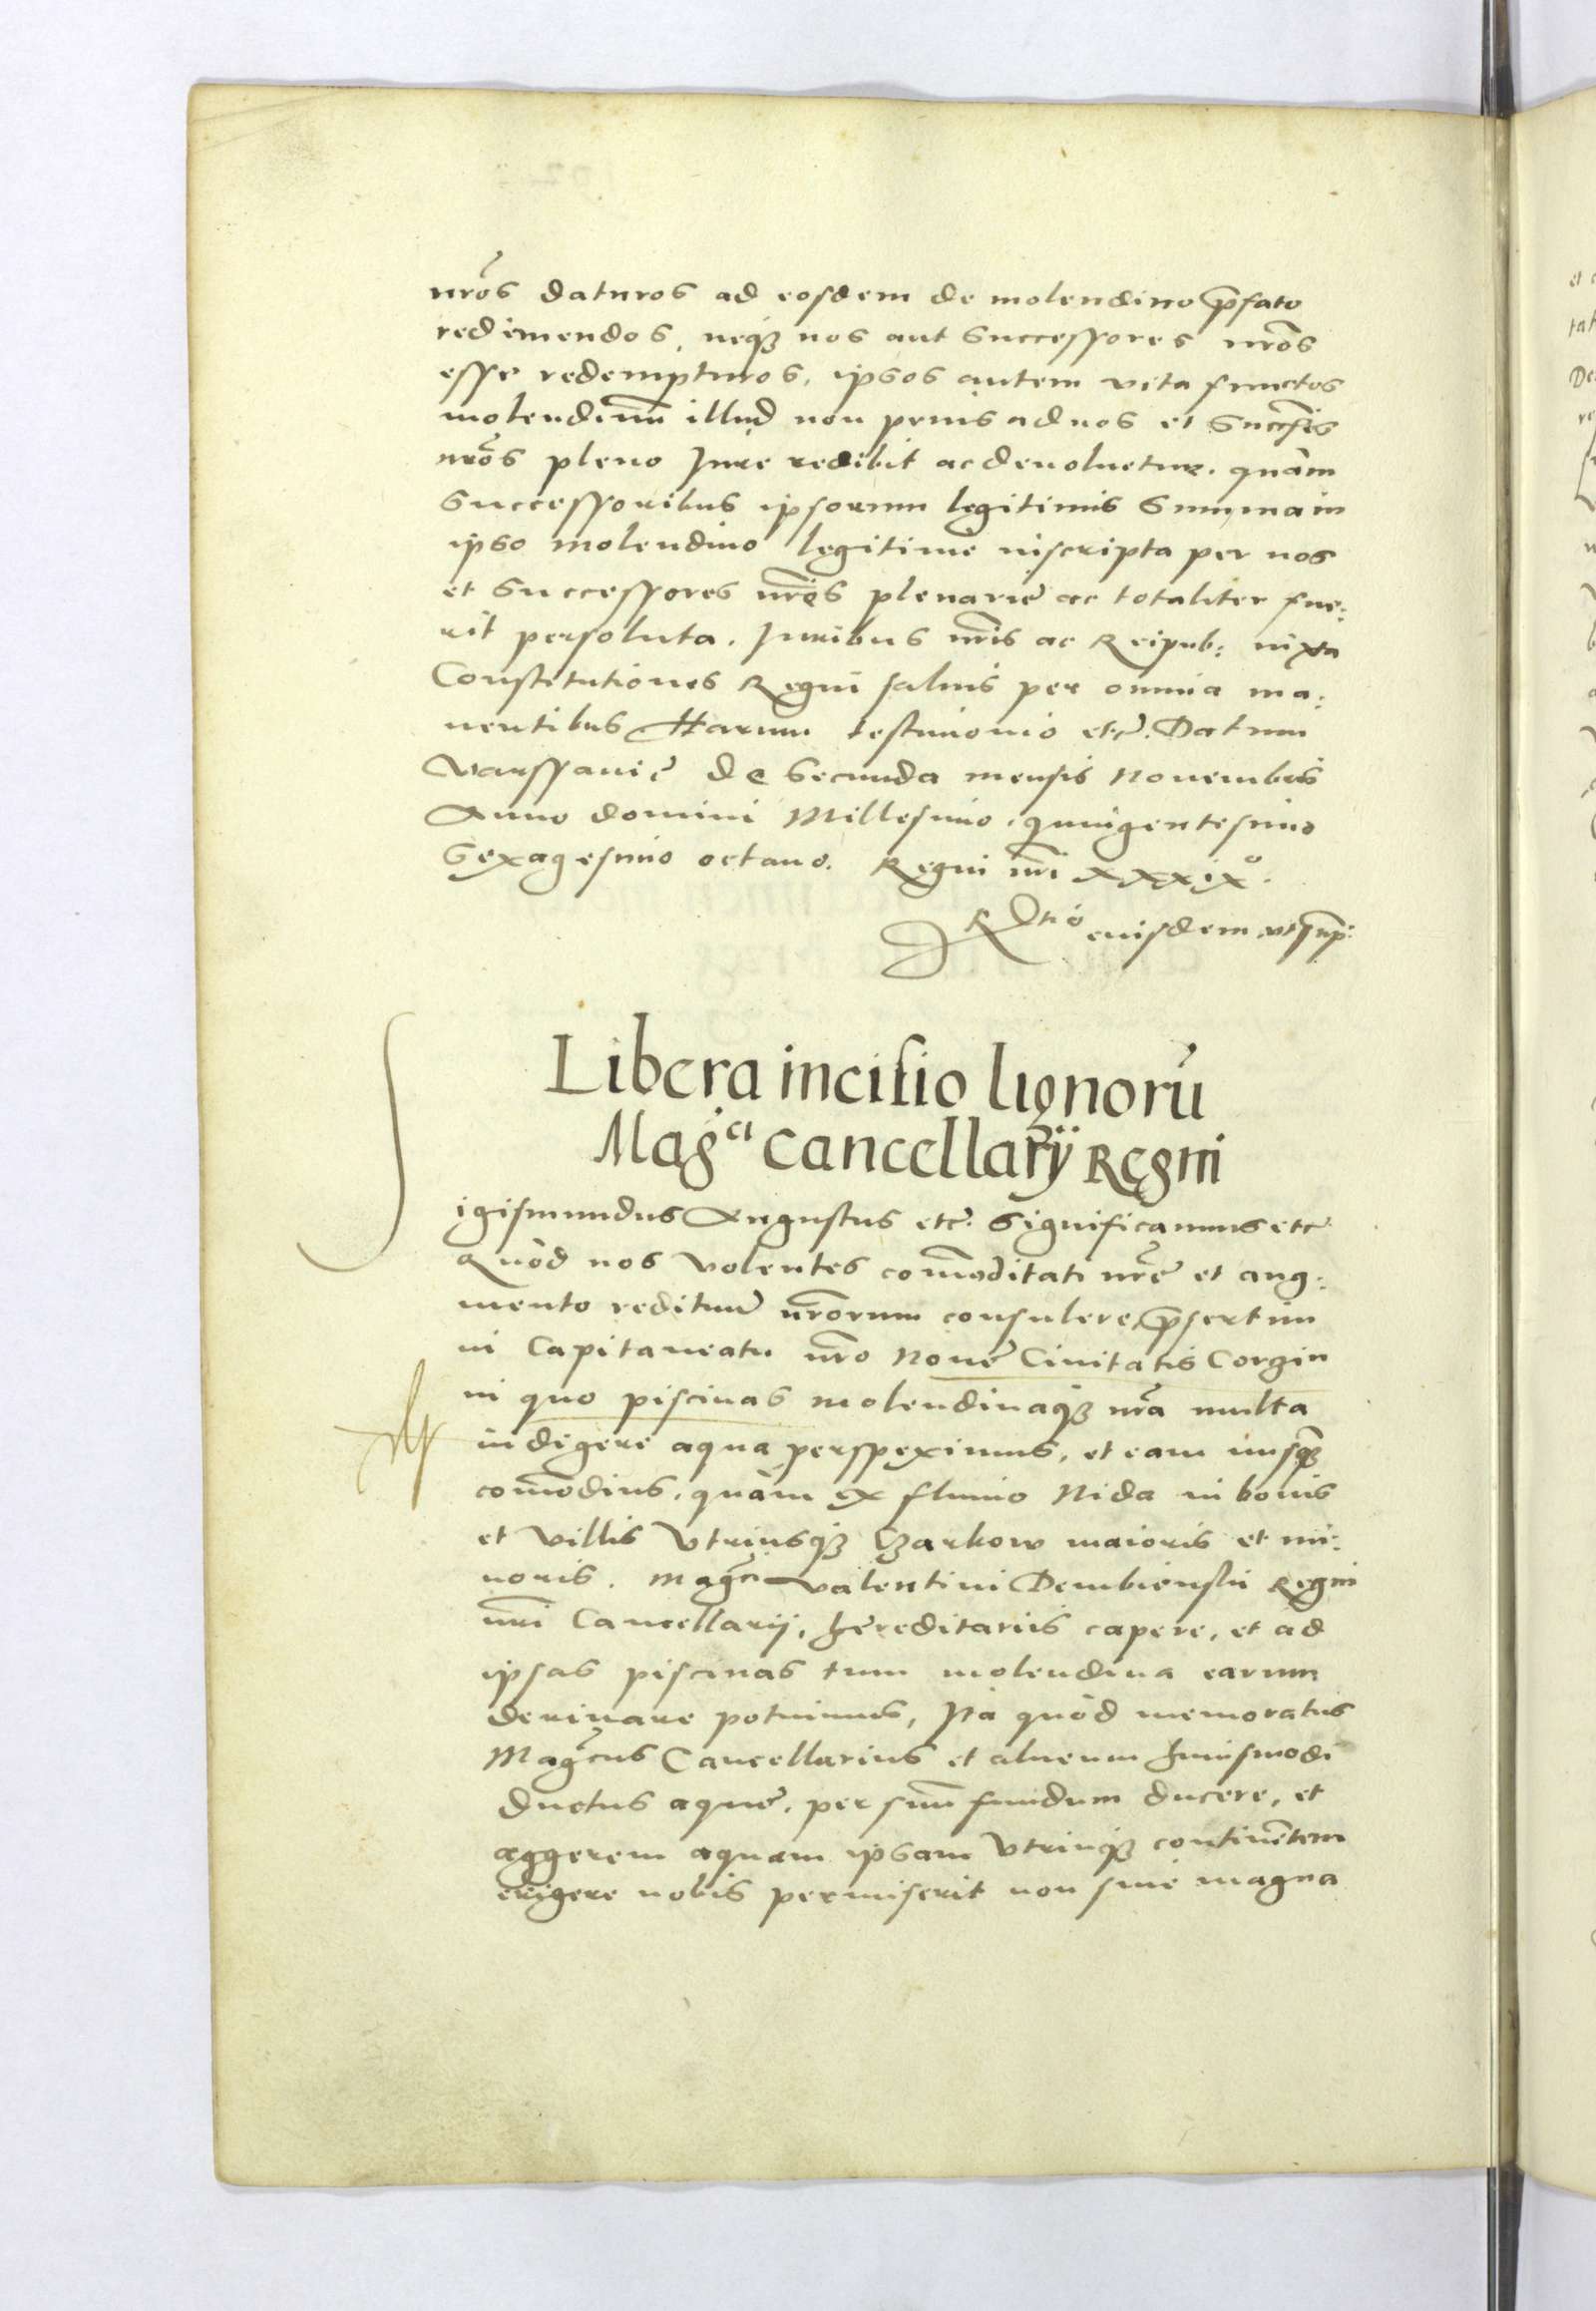 nrõs daturos ad eosdem de molendino p̃fato
redimendos, neq́ꝫ nos aut Successores nrõs
esse redempturos, ipsos autem vita functos
molendinũ illud non prius ad nos et Succes̃s
nrõs pleno Jure redibit ac devoluetur. quàm
Successoribus ipsorum legitimis Summa in
ipso molendino legitimè inscripta per nos
et Successores nrõs plenariè ac totaliter fue:
rit persoluta. Juribus nrĩs ac Reipub: iuxta
Constitutiones Regni salvis per omnia ma:
nentibus Harum testimonio etc̃. Datum
Varssavię de Secunda mensis Novembris
Anno domini Millesimo, quingentesimo
Sexagesimo octavo. Regni nrĩ xxxix°.
Rtio eiusdem ut sup:
Libera incisio lignorũ
Mag̃ci Cancellarij Regni
Sigismundus Augustus etc̃. Significamus etc̃
Quòd nos volentes com̃oditati nrẽ et aug:
mento redituũ nrõrum consulere p̃sertim
in Capitaneatu nrõ Novę Civitatis Corzin
in quo piscinas molendinaq́ꝫ nrã multa
indigere aqua perspeximus, et eam nusq̃ꝫ
com̃odius, quàm ex fluvio Nida in bonis
et villis Vtriusq́ꝫ Czarkow maioris et mi:
noris. Mag̃ci Valentini Dembienski Regni
nrĩ Cancellarij, hereditariis capere, et ad
ipsas piscinas tum molendina earum
derivare potuimus, Ita quòd memoratus
Mag̃cus Cancellarius et alveum huiusmodi
ductus aquę, per suũ fundum ducere, et
aggerem aquam ipsam Vtrinq́ꝫ continẽtem
erigere nobis permiserit non sine magna